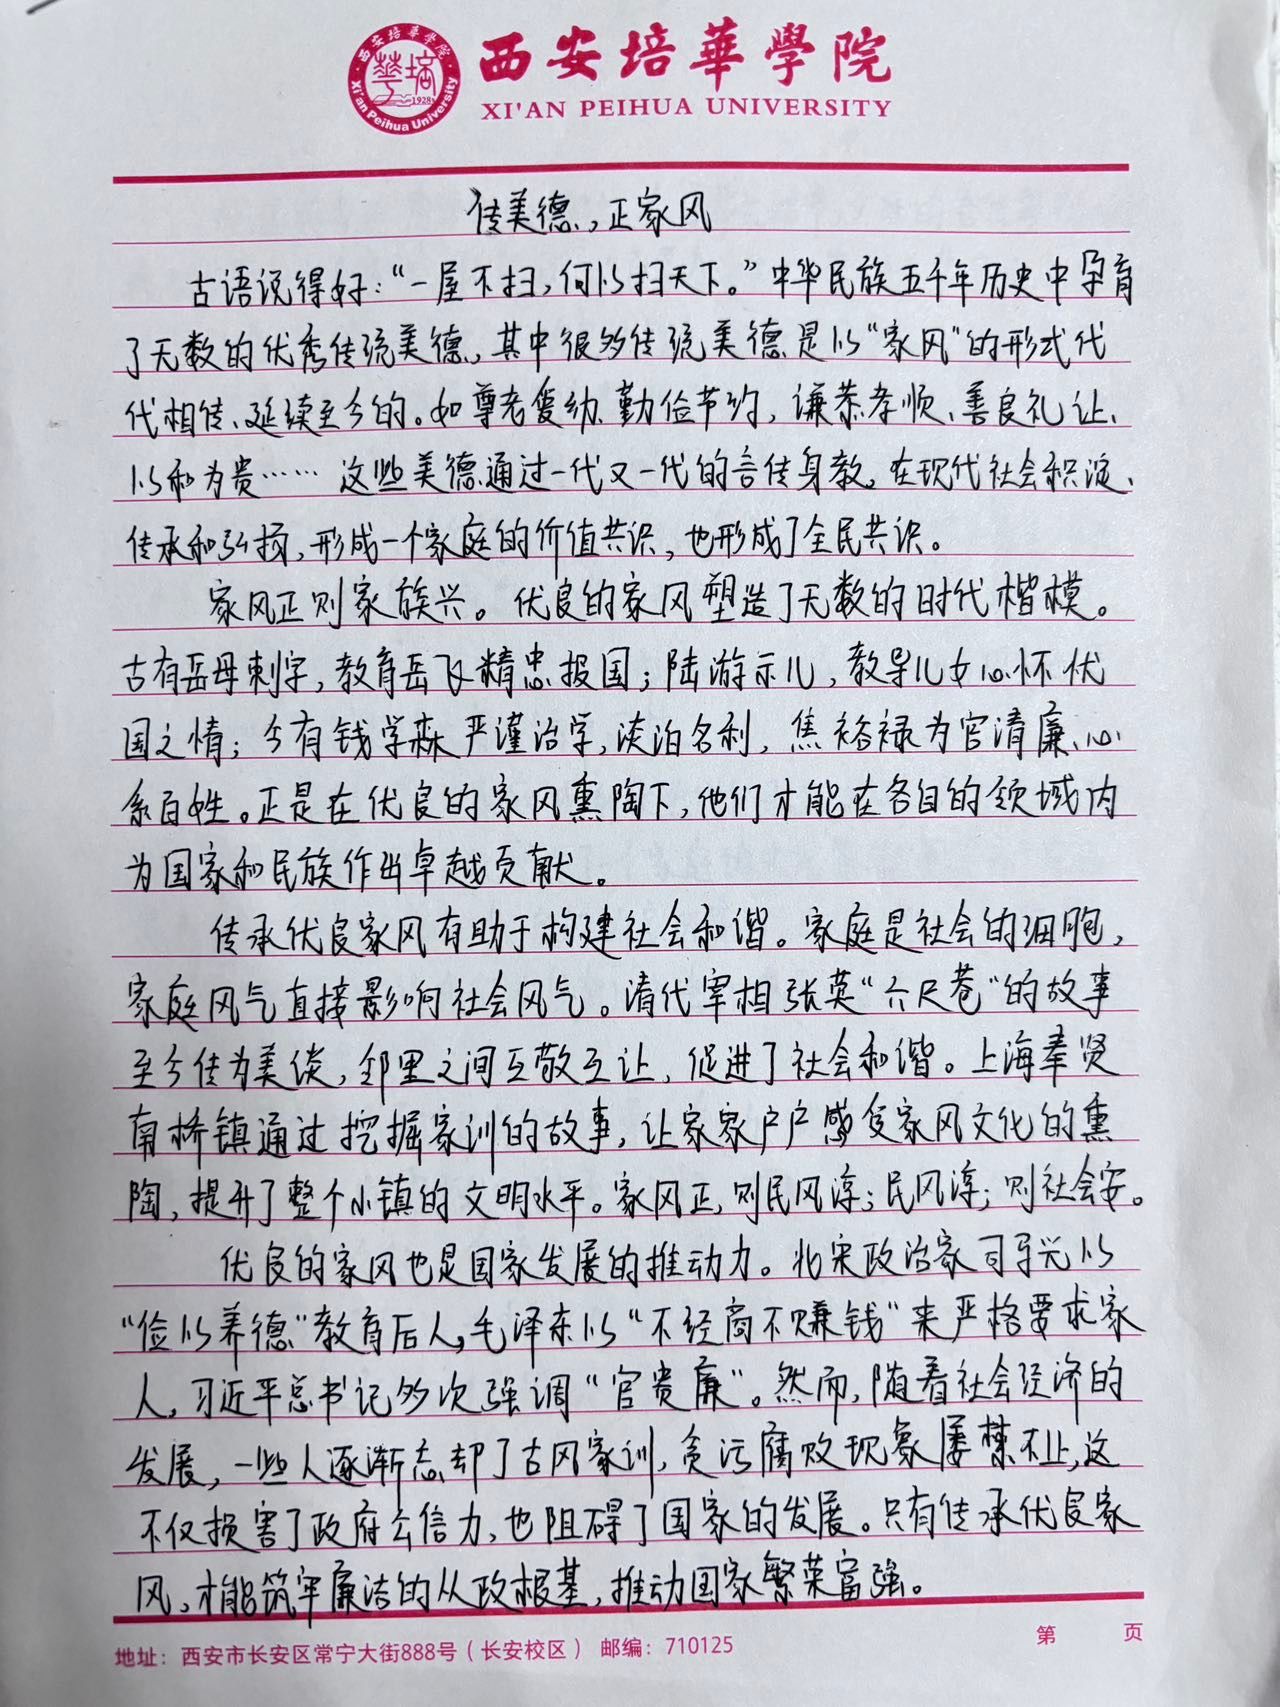 西安培華學院
XI'AN PEIHUA UNIVERSITY
西安培華學院
1928
Xi'an Peihua University
传美德，正家风
古语说得好：“一屋不扫，何以扫天下。”中华民族五千年历史中孕育
了无数的优秀传统美德，其中很多传统美德是以“家风”的形式代
代相传、延续至今的。如尊老爱幼、勤俭节约，谦恭孝顺、善良礼让、
以和为贵…… 这些美德通过一代又一代的言传身教，在现代社会积淀、
传承和弘扬，形成一个家庭的价值共识，也形成了全民共识。
家风正则家族兴。优良的家风塑造了无数的时代楷模。
古有岳母刺字，教育岳飞精忠报国；陆游示儿，教导儿女心怀忧
国之情；今有钱学森严谨治学，淡泊名利，焦裕禄为官清廉、心
系百姓。正是在优良的家风熏陶下，他们才能在各自的领域内
为国家和民族作出卓越贡献。
传承优良家风有助于构建社会和谐。家庭是社会的细胞，
家庭风气直接影响社会风气。清代宰相张英“六尺巷”的故事
至今传为美谈，邻里之间互敬互让，促进了社会和谐。上海奉贤
南桥镇通过挖掘家训的故事，让家家户户感受家风文化的熏
陶，提升了整个小镇的文明水平。家风正，则民风淳；民风淳；则社会安。
优良的家风也是国家发展的推动力。北宋政治家司马光以
“俭以养德”教育后人，毛泽东以“不经商不赚钱”来严格要求家
人，习近平总书记多次强调“官贵廉”。然而，随着社会经济的
发展，一些人逐渐忘却了古风家训，贪污腐败现象屡禁不止，这
不仅损害了政府公信力，也阻碍了国家的发展。只有传承优良家
风，才能筑牢廉洁的从政根基，推动国家繁荣富强。
第 页
地址：西安市长安区常宁大街888号（长安校区） 邮编：710125